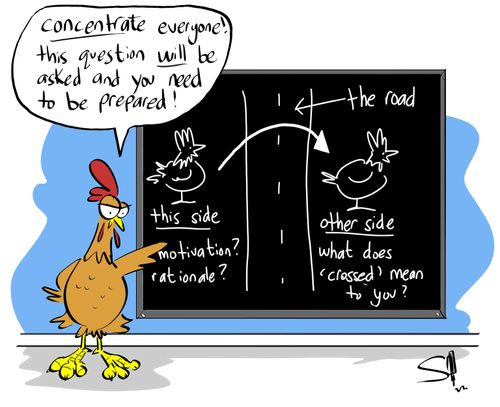 concentrate everyone!
this question will be
asked and you need
to be prepared!
the road
this side
motivation?
rationale?
other side
what does
'crossed' mean
to you?